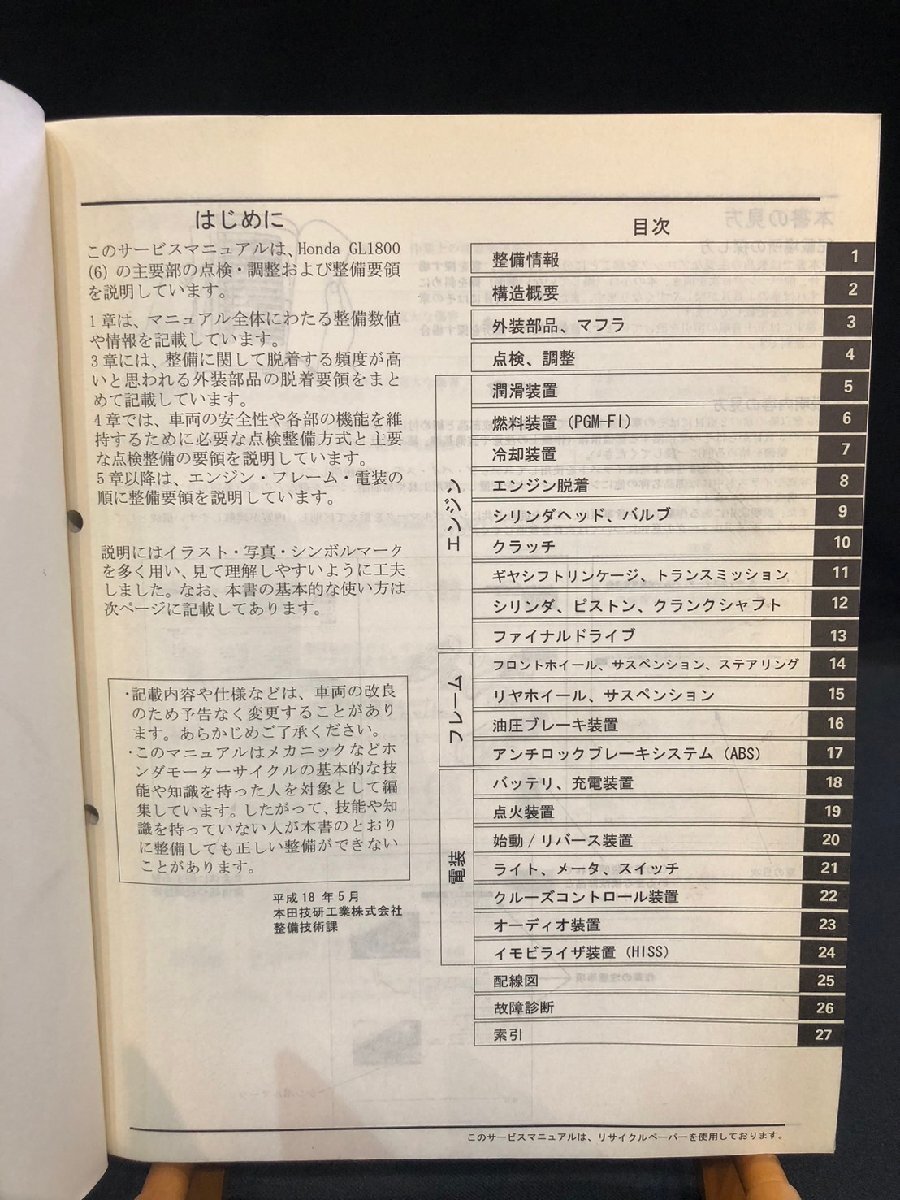 はじめに
このサービスマニュアルは、Honda GL1800
(6) の主要部の点検・調整および整備要領
を説明しています。
1章は、マニュアル全体にわたる整備数値
や情報を記載しています。
3章には、整備に関して脱着する頻度が高
いと思われる外装部品の脱着要領をまと
めて記載しています。
4章では、車両の安全性や各部の機能を維
持するために必要な点検整備方式と主要
な点検整備の要領を説明しています。
5章以降は、エンジン・フレーム・電装の
順に整備要領を説明しています。
説明にはイラスト・写真・シンボルマーク
を多く用い、見て理解しやすいように工夫
しました。なお、本書の基本的な使い方は
次ページに記載してあります。
・記載内容や仕様などは、車両の改良
のため予告なく変更することがあり
ます。あらかじめご了承ください。
・このマニュアルはメカニックなどホ
ンダモーターサイクルの基本的な技
能や知識を持った人を対象として編
集しています。したがって、技能や知
識を持っていない人が本書のとおり
に整備しても正しい整備ができない
ことがあります。
平成18年5月
本田技研工業株式会社
整備技術課
目次
整備情報 1
構造概要 2
外装部品、マフラ 3
点検、調整 4
エンジン
潤滑装置 5
燃料装置 (PGM-FI) 6
冷却装置 7
エンジン脱着 8
シリンダヘッド、バルブ 9
クラッチ 10
ギヤシフトリンケージ、トランスミッション 11
シリンダ、ピストン、クランクシャフト 12
ファイナルドライブ 13
フレーム
フロントホイール、サスペンション、ステアリング 14
リヤホイール、サスペンション 15
油圧ブレーキ装置 16
アンチロックブレーキシステム (ABS) 17
電装
バッテリ、充電装置 18
点火装置 19
始動 / リバース装置 20
ライト、メータ、スイッチ 21
クルーズコントロール装置 22
オーディオ装置 23
イモビライザ装置 (HISS) 24
配線図 25
故障診断 26
索引 27
このサービスマニュアルは、リサイクルペーパーを使用しております。